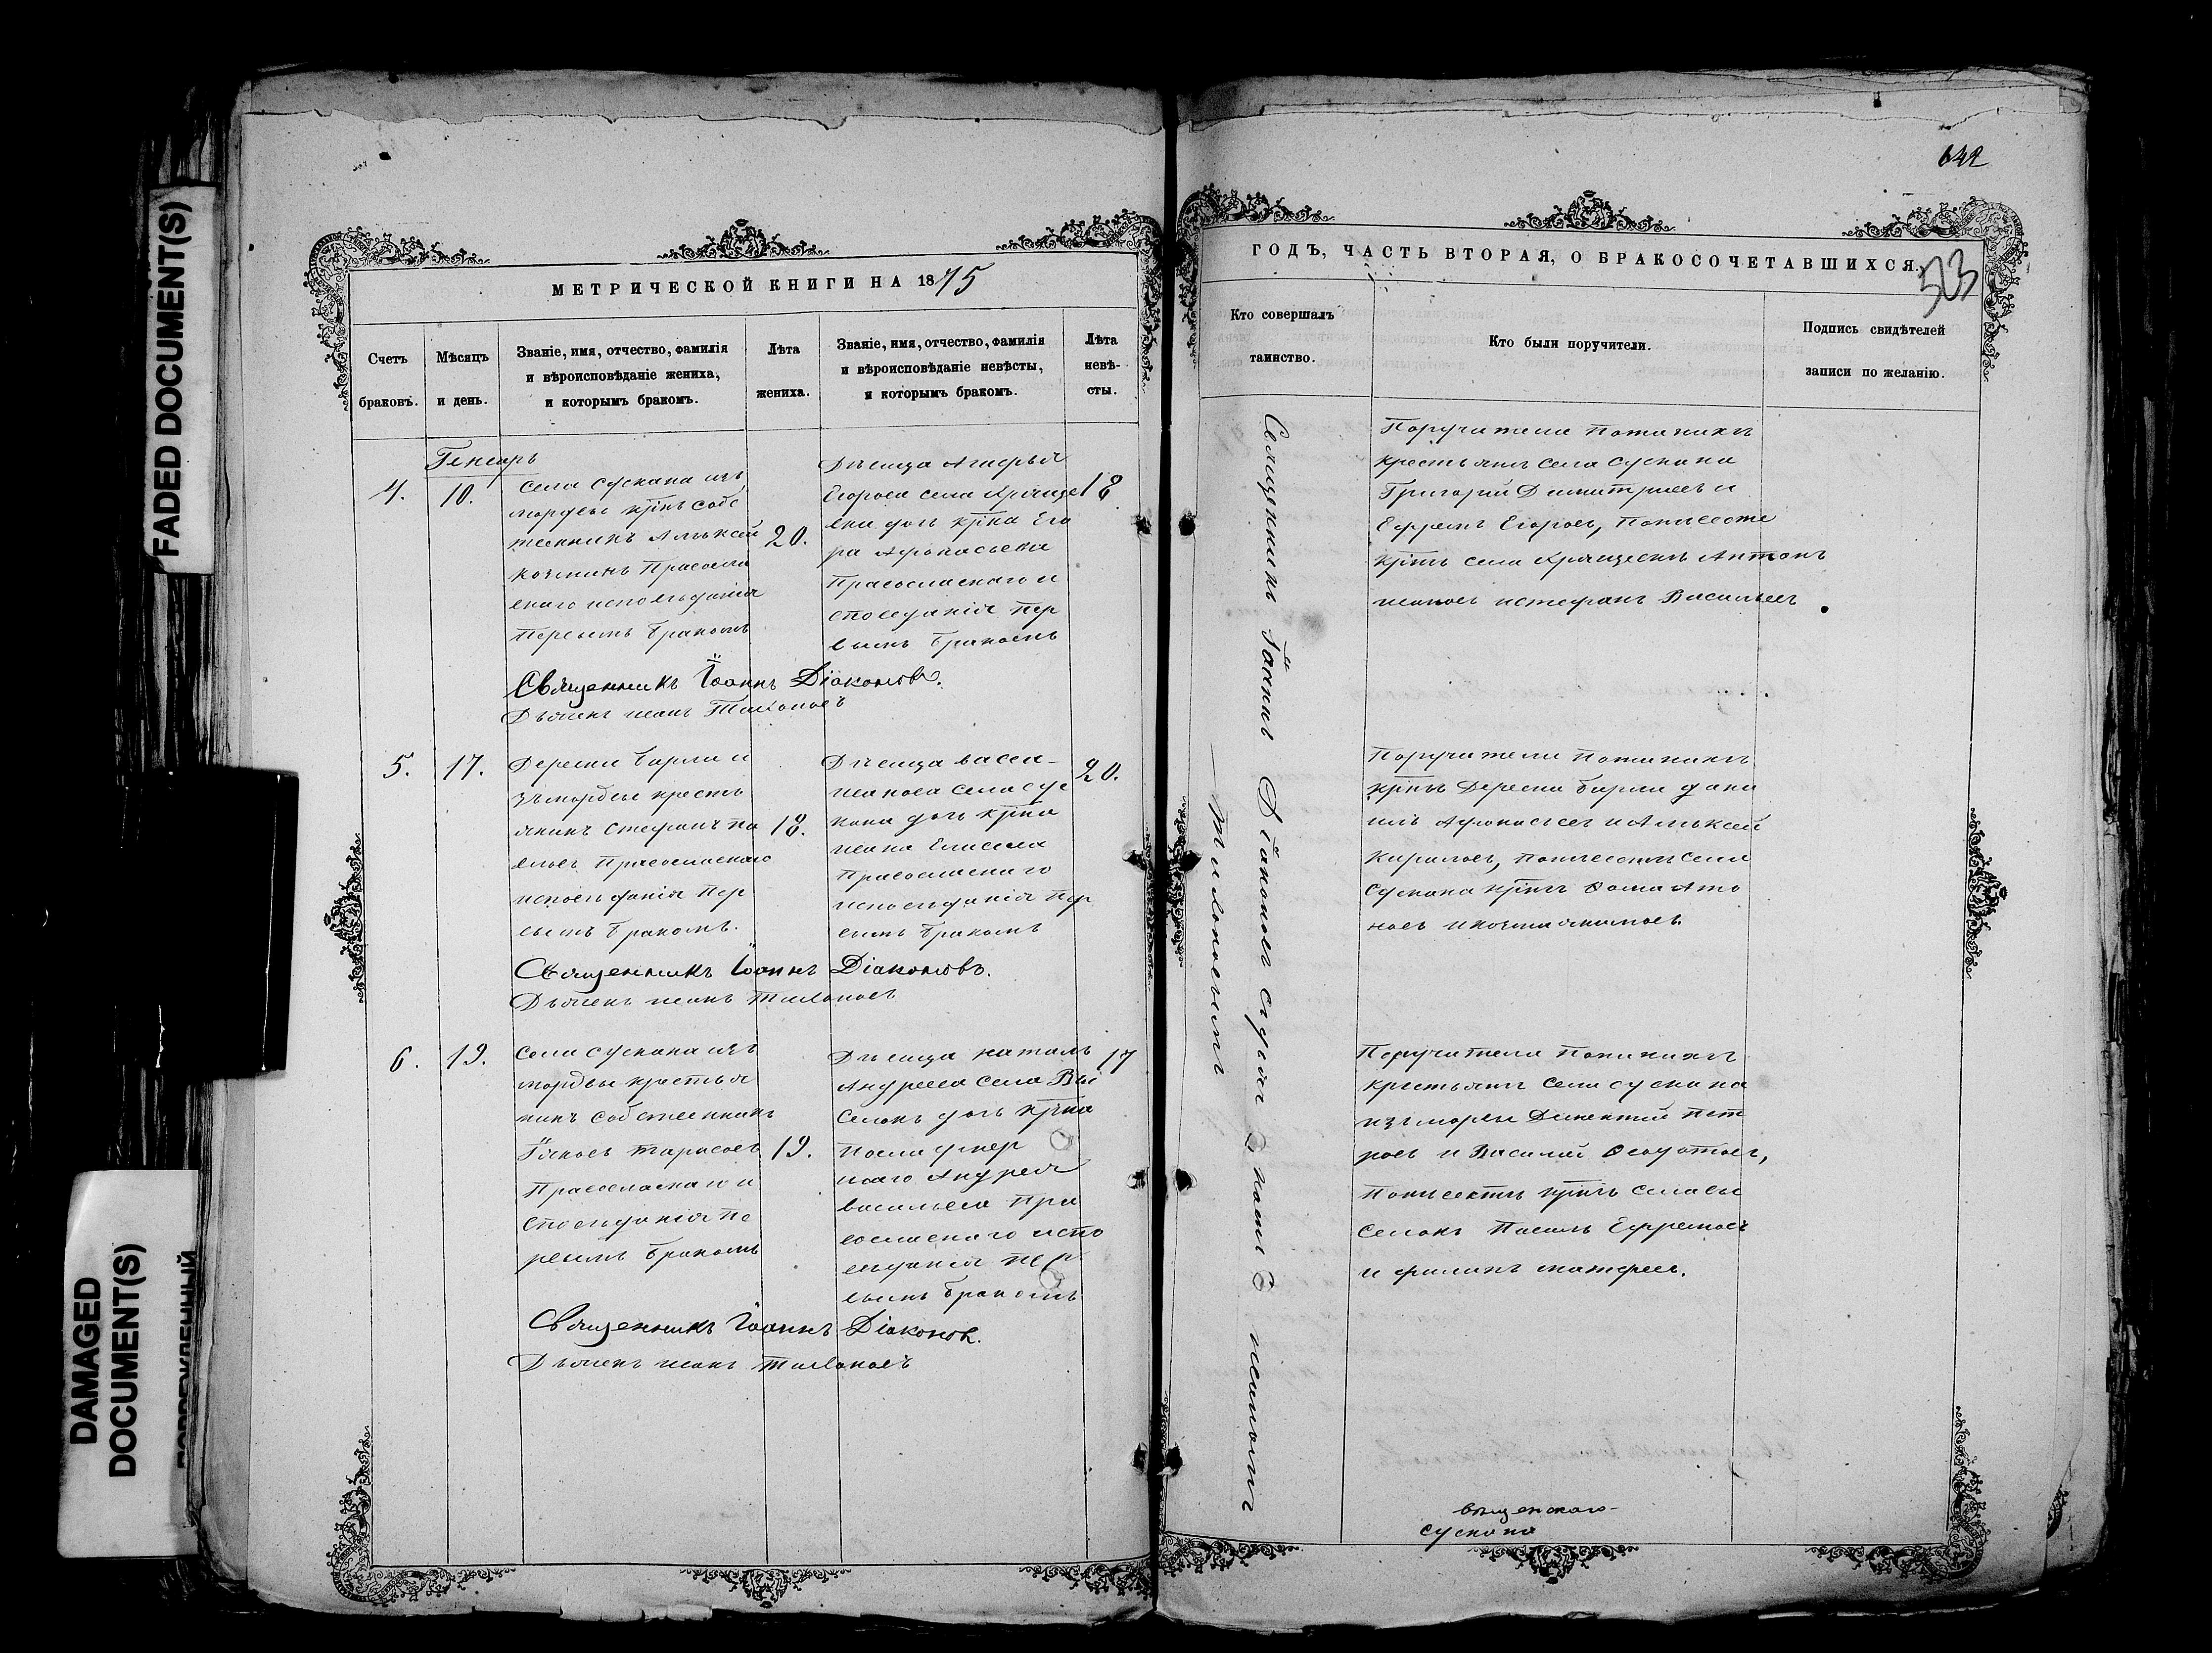 FADED DOCUMENT(S)
DAMAGED
DOCUMENT(S)
МЕТРИЧЕСКОЙ КНИГИ НА 1875
Счетъ
браковъ.
Мѣсяцъ
и день.
Званіе, имя, отчество, фамилія
и вѣроисповѣданіе жениха,
и которымъ бракомъ.
Лѣта
жениха.
Званіе, имя, отчество, фамилія
и вѣроисповѣданіе невѣсты,
и которымъ бракомъ.
Лѣта
невѣ-
сты.
Генварь
4.
10.
Села Сускана изъ
мордвы крнъ собс
твенникъ Алѣксей
Козминъ Правосла
внаго исповѣданія
первымъ бракомъ
20.
Дѣвица
Егорова села Хряще
вки дочь крна Его
ра Афонасьева
Православнаго и
споведанія пер
вымъ бракомъ
18
Священникъ Іоаннъ Діаконовъ.
Дьячекъ Иванъ Тихоновъ
5.
17.
Деревни Бирли и
зъ мордвы кресть
янинъ Стефанъ Па
вловъ Православнаго
исповѣданія пер
вымъ бракомъ.
18.
Дѣвица Васса
Иванова села Сус
кана дочь крна
Ивана Елисева
Православнаго
исповѣданія пер
вымъ бракомъ
20.
Священникъ Іоаннъ Діаконовъ.
Дьячекъ Иванъ Тихоновъ
6.
19.
Села Сускана изъ
мордвы крестья
нинъ собственникъ
Іяковъ Тарасовъ
Православнаго и
споведанія пе
рвымъ бракомъ
19.
Дѣвица Наталь
Андреева села Вы
селокъ дочь крна
после умер
шаго Андрея
Васильева Пра
вославнаго испо
вѣданія пер
вымъ бракомъ
17
Священникъ Іоаннъ Діаконовъ.
Дьячекъ Иванъ Тихоновъ
642
ГОДЪ, ЧАСТЬ ВТОРАЯ, О БРАКОСОЧЕТАВШИХСЯ.
503
Кто совершалъ
таинство.
Кто были поручители.
Подпись свидѣтелей
записи по желанію.
Священникъ Іаеннъ Діаконовъ съ Иваномъ
Тихоновымъ
Поручители по женихѣ
крестьяне села Сускана
Григорій Димитриевъ и
Ефремъ Егоровъ, по невесте
крне села Хрящевки Антонъ
Ивановъ и Стефанъ Васильевъ
Поручители по женихѣ
крне деревни Бирли Дани
илъ Афонасьевъ и Алѣксей
Кириловъ, по невесте села
Сускана крне Фома
Поручители по женихѣ
крестьяне села Сускана
изъ мордвы Дементий Пет
ровъ и Василий
по невесте крне села Вы
селокъ Павелъ Ефремовъ
и Филипъ Матвеевъ.
Сускана